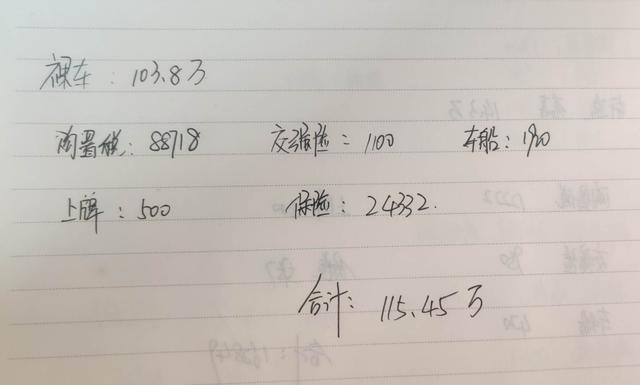 裸车：103.8万
购置税：88718 交强险：1100 车船：1920
上牌：500 保险：24332.
合计：115.45万